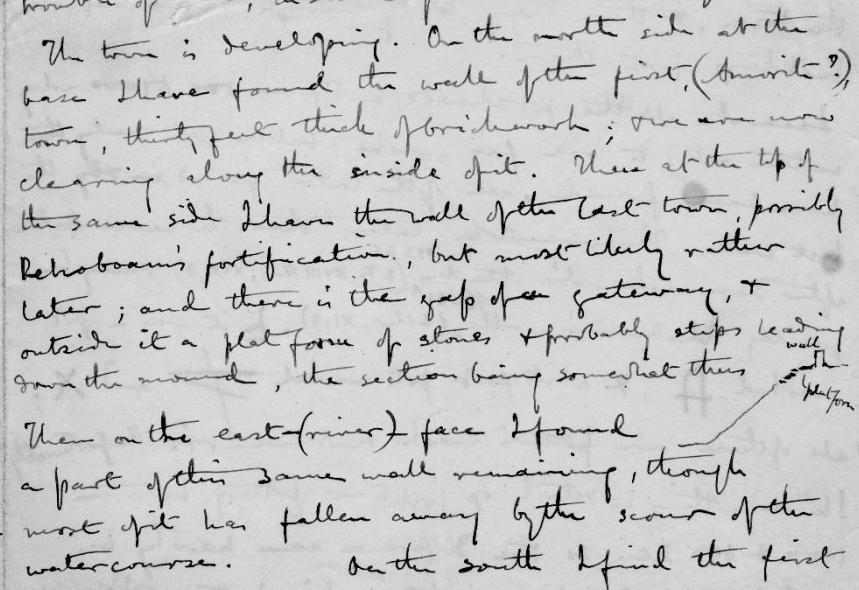 trouble of
The town is developing. On the north side at the
base I have found the wall of the first, (Amorite?),
town, thirty feet thick of brickwork; & we are now
clearing along the inside of it. Then at the top of
the same side I have the wall of the last town, possibly
Rehoboam's fortification, but most likely rather
later; and there is the gap of a gateway, &
outside it a platform of stones & probably steps leading
down the mound, the section being somewhat thus
wall
platform
Then on the east (river) face I found
a part of this same wall remaining, though
most of it has fallen away by the scour of the
watercourse. On the south I find the first